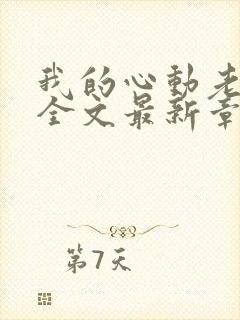 我的心動老
全文最新章
第7天